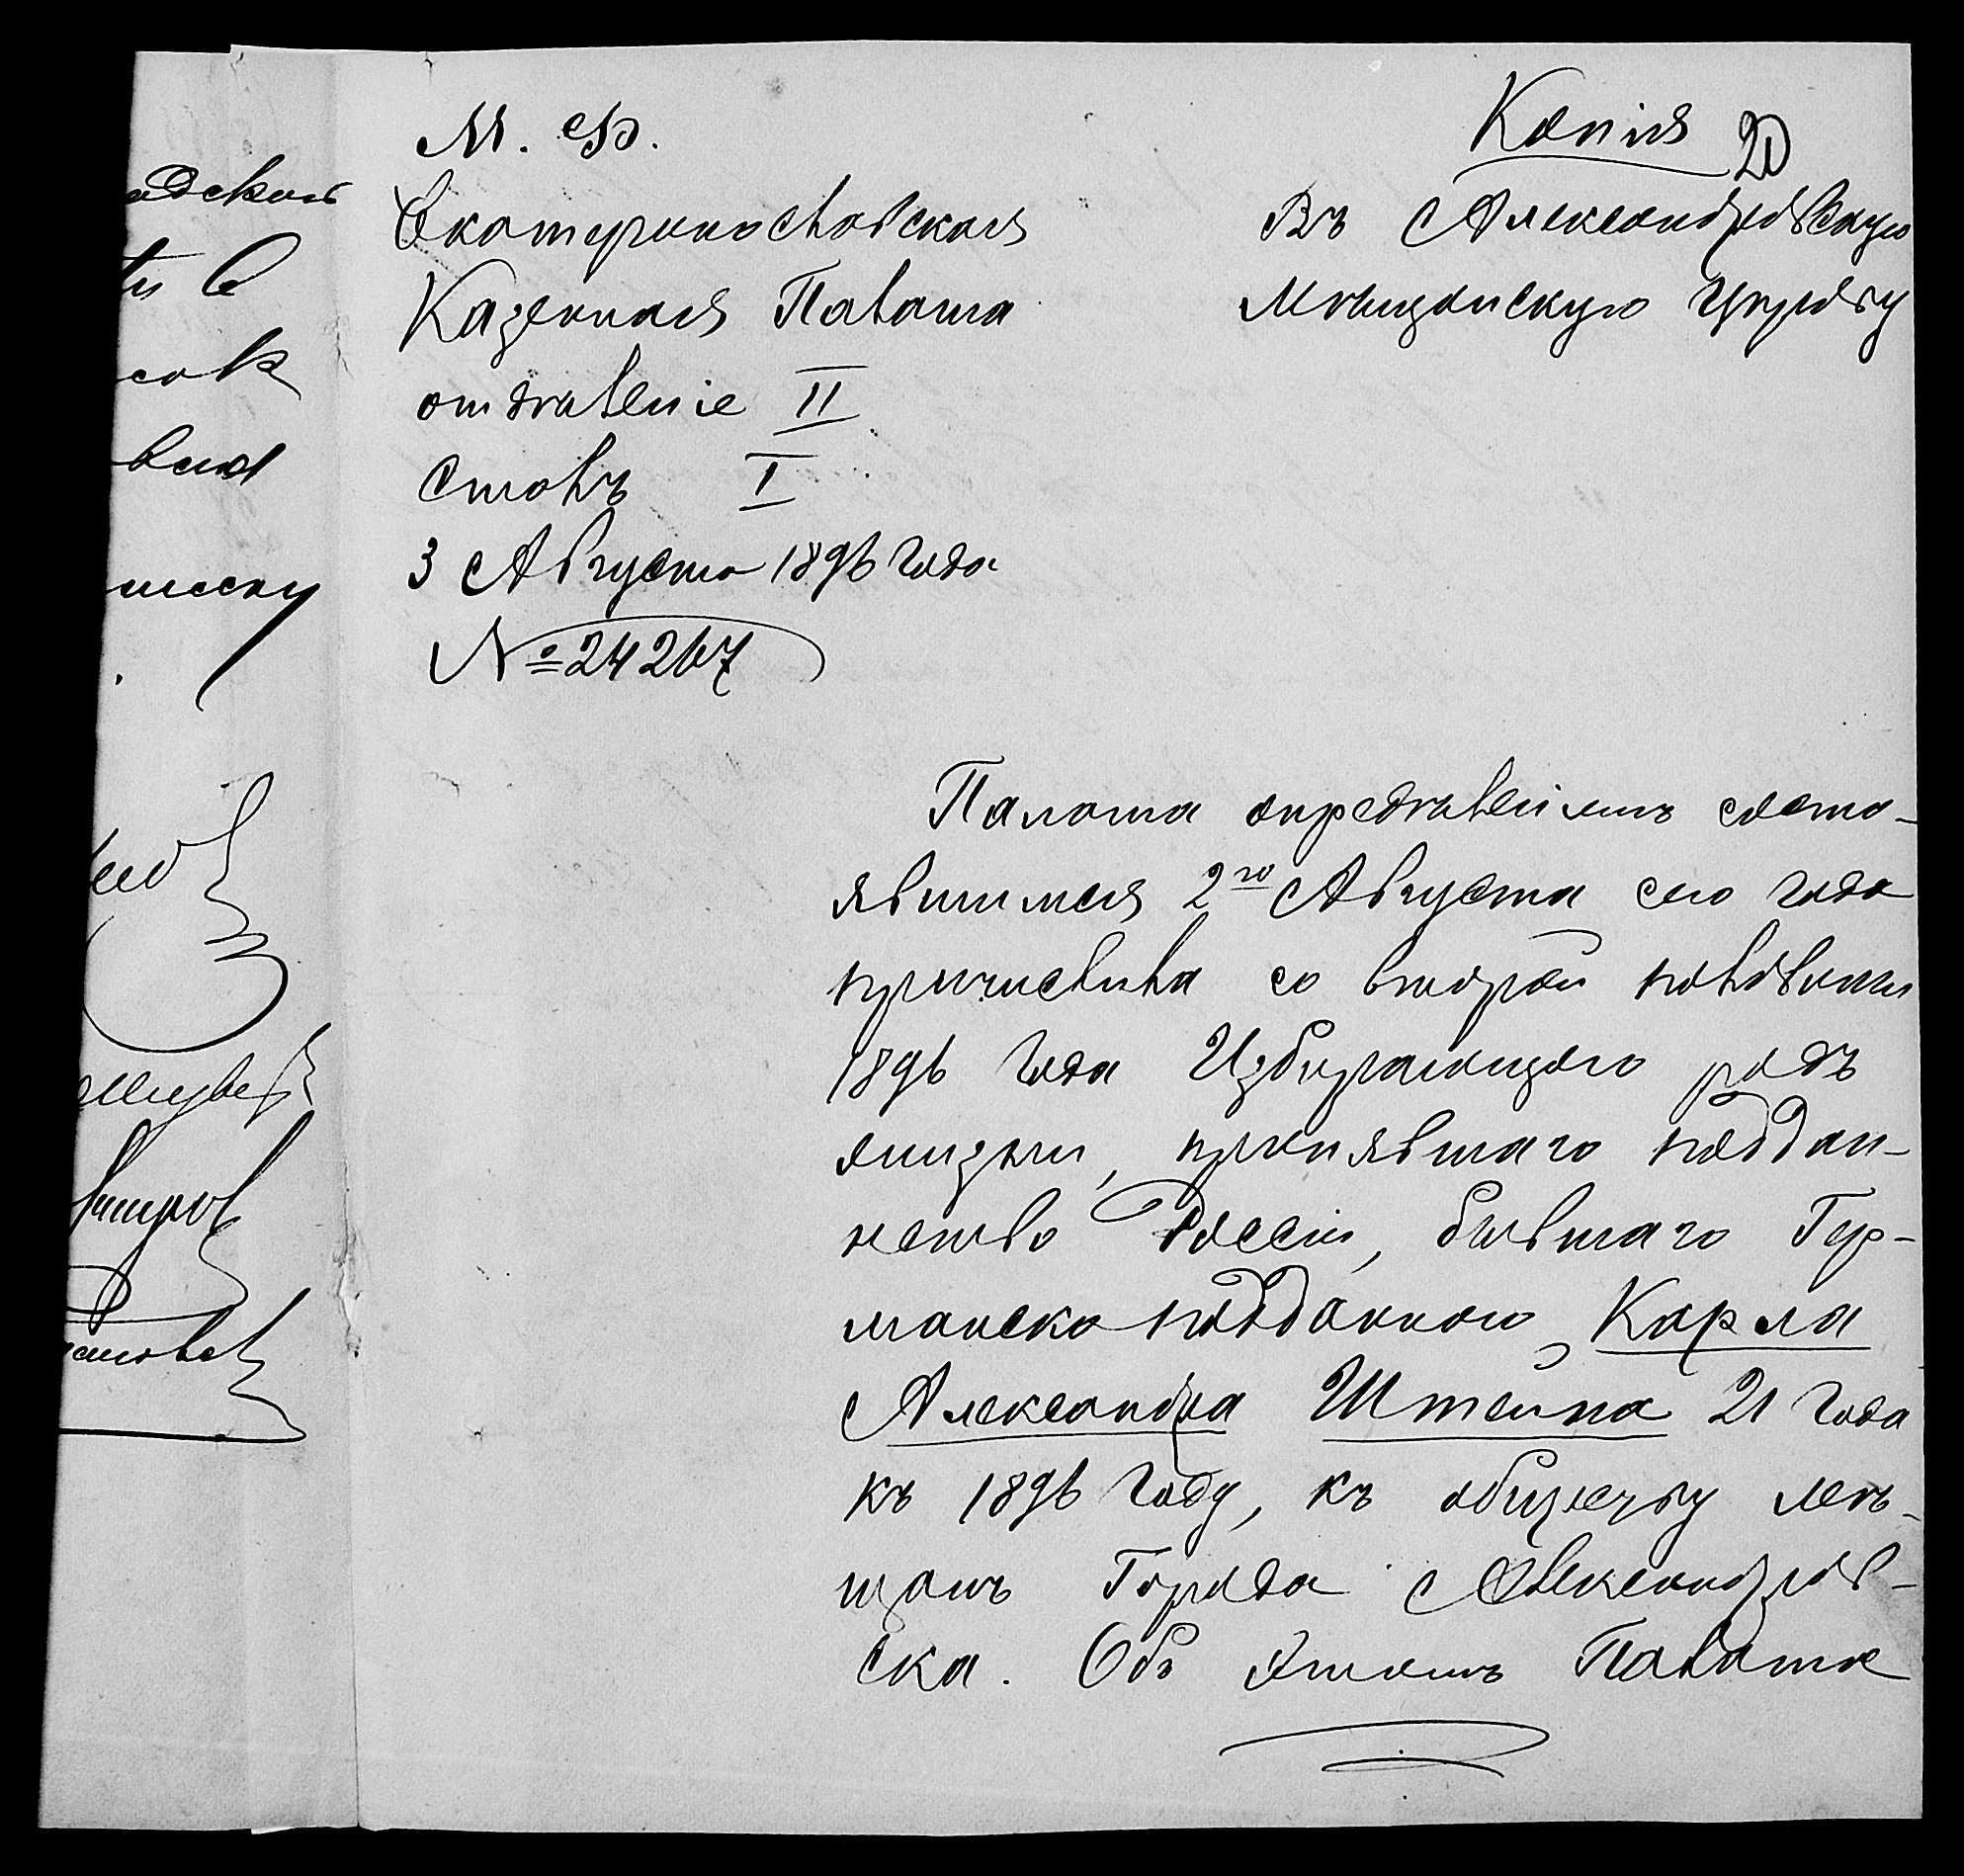 Копія
20
М. Ф.
Екатеринославская
Казенная Палата
отдѣленіе II
Столъ I
3 Августа 1896 года
№ 24267
Въ Александровскую
Мѣщанскую Управу
Палата опредѣленіемъ состо-
явшимся 2го Августа сего года
причислила со второй половины
1896 года Избирающаго родъ
жизни, принявшаго поддан-
нство Россіи, бывшаго Гер-
манско подданного, Карла
Александра Штейна 21 года
къ 1896 году, къ обществу мѣ-
щанъ Города Александров-
ска. Объ этомъ Палата